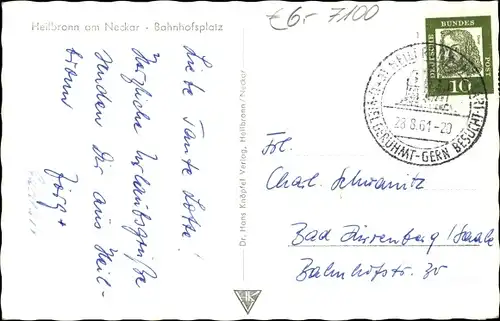 Heilbronn am Neckar - Bahnhofsplatz
€6,- 7100
Liebe Tante Lotte!
Herzliche Urlaubsgrüße
senden Dir aus Heil-
bronn
Jörg +
Dr. Hans Knöpfel Verlag, Heilbronn/Neckar
DEUTSCHE BUNDES POST
10
28.8.61-20
VIELGERÜHMT-GERN BESUCHT
Frl.
Charl. Schwanitz
Bad Dürrenberg/Saale
Bahnhofstr. 20